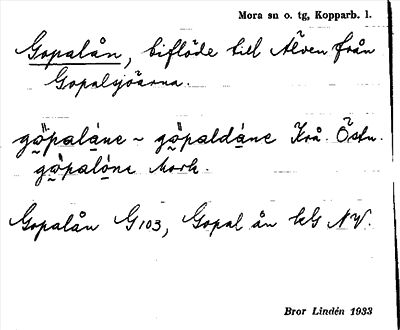 Mora sn o. tg, Kopparb. l.
Gopalån, biflöde till Älven från
Gopalsjöarna.
gö̀paláne ~ gö̀paldáne Krå. Östn.
gö̀palóne Mork.
Gopalån G103, Gopal ån kG NV.
Bror Lindén 1933